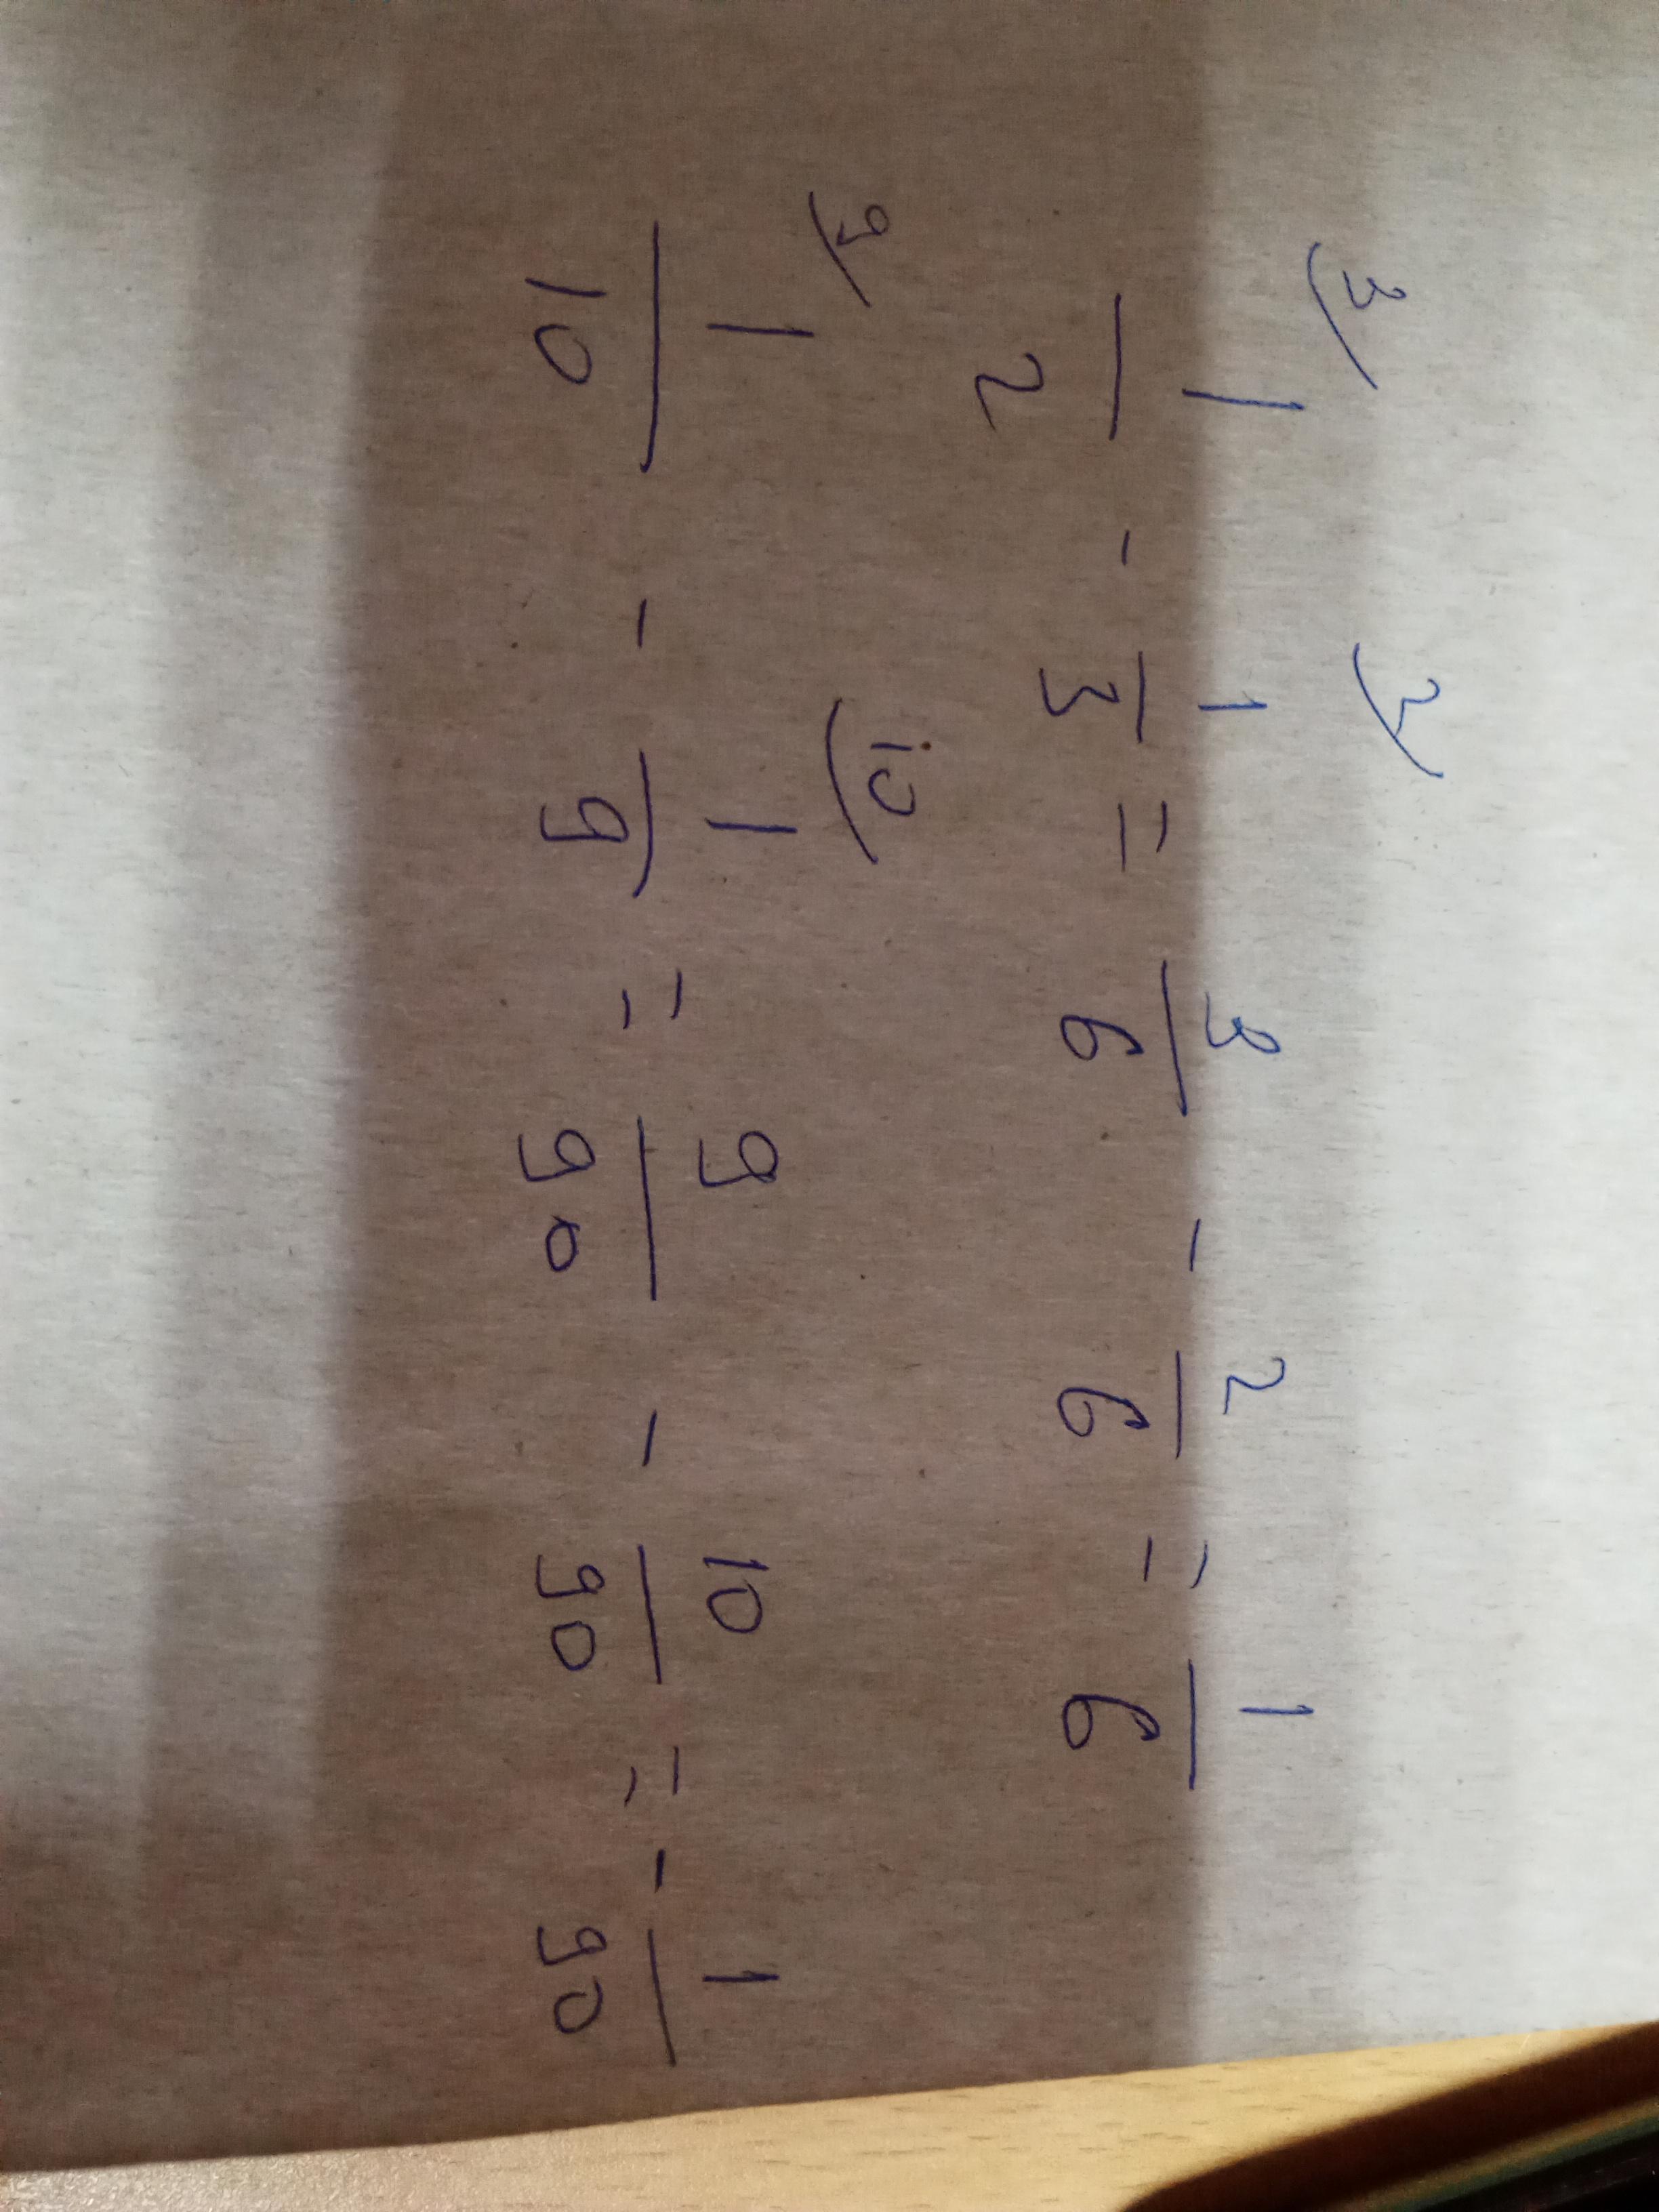 3) 2)
1/2 - 1/3 = 3/6 - 2/6 = 1/6
9) 10)
1/10 - 1/9 = 9/90 - 10/90 = - 1/90